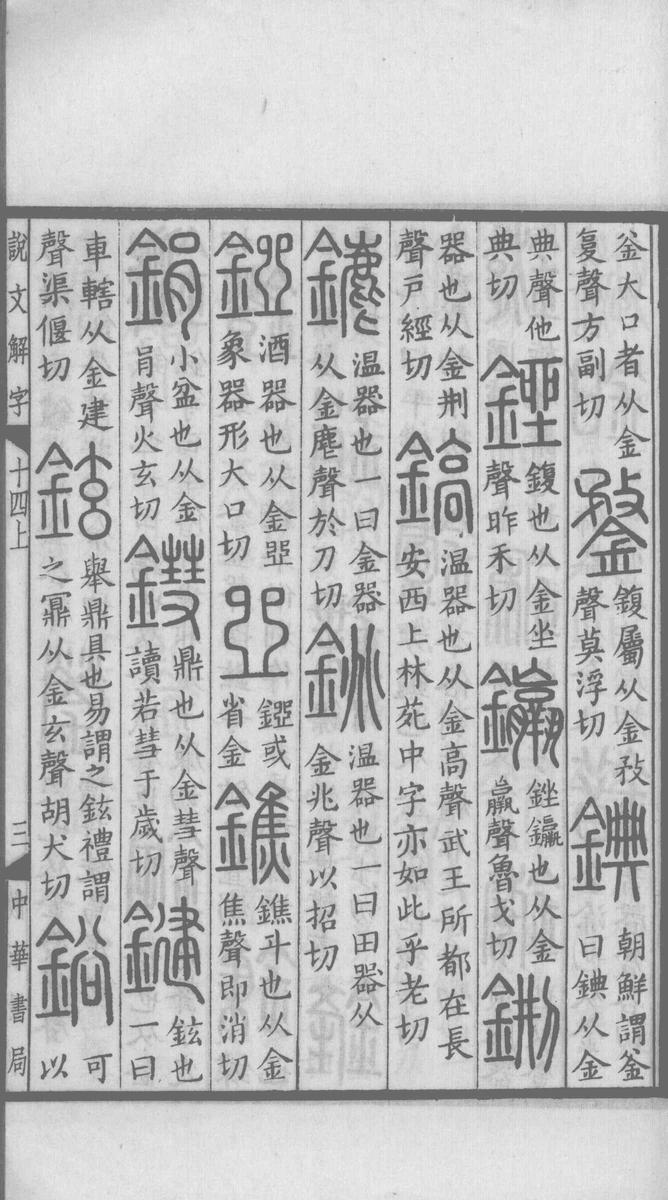 釜大口者从金复聲方副切 鍪 鍑屬从金敄聲莫浮切 錪 朝鮮謂釜曰錪从金
典聲他典切 銼 鍑也从金坐聲昨禾切 𨰠 銼𨰠也从金羸聲魯戈切 鉶
器也从金荆聲戶經切 鎬 温器也从金高聲武王所都在長安西上林苑中字亦如此乎老切
温器也一曰金器从金麀聲於刀切 銚 温器也一曰田器从金兆聲以招切
酒器也从金象器形大口切 或省金 鐎 鐎斗也从金焦聲即消切
鋗 小盆也从金肙聲火玄切 鼎也从金彗聲讀若彗于歲切 鍵 鉉也一曰
車轄从金建聲渠偃切 鉉 舉鼎具也易謂之鉉禮謂之鼏从金玄聲胡犬切 鋊 可以
說文解字 十四上 三 中華書局